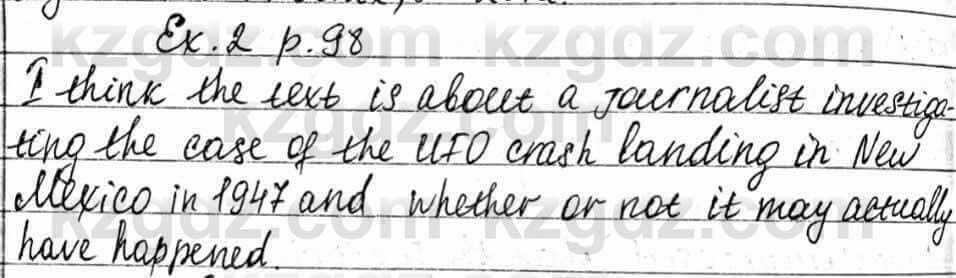 Ex. 2 p. 98
I think the text is about a journalist investiga-
ting the case of the UFO crash landing in New
Mexico in 1947 and whether or not it may actually
have happened.
kzgdz.com kzgdz.com
kzgdz.com
kzgdz.com kzgdz.com